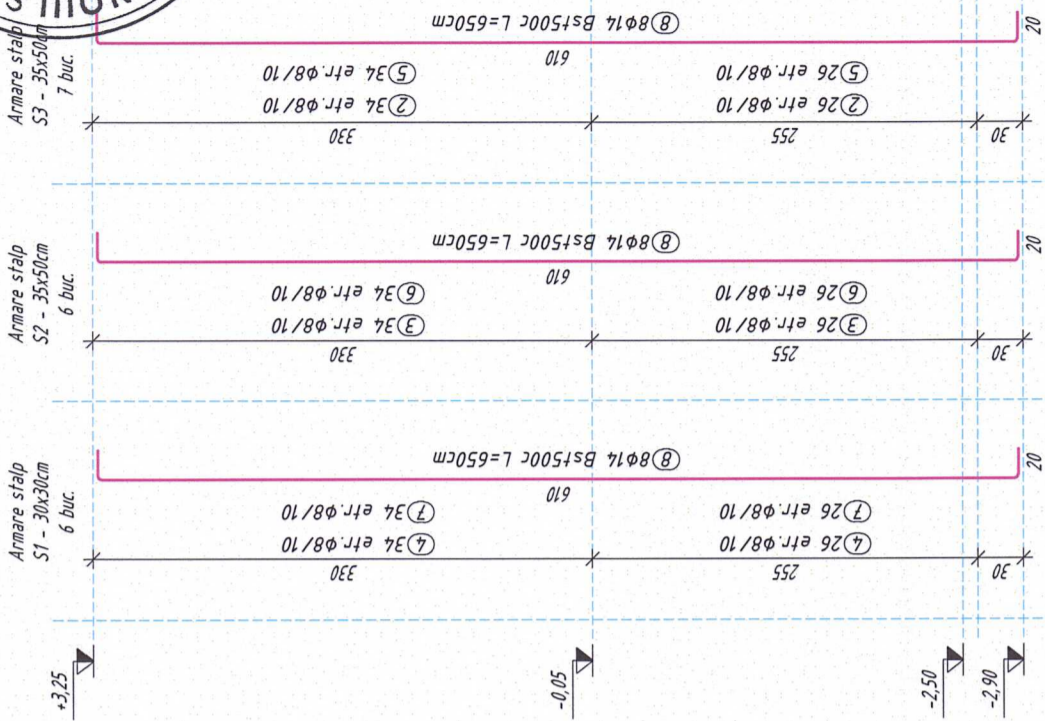 Armare stalp
S3 - 35x50cm
7 buc.
⑧ 8Φ14 Bst500c L=650cm
610
20
⑤ 34 etr.Φ8/10
② 34 etr.Φ8/10
330
⑤ 26 etr.Φ8/10
② 26 etr.Φ8/10
255
30
Armare stalp
S2 - 35x50cm
6 buc.
⑧ 8Φ14 Bst500c L=650cm
610
20
⑥ 34 etr.Φ8/10
③ 34 etr.Φ8/10
330
⑥ 26 etr.Φ8/10
③ 26 etr.Φ8/10
255
30
Armare stalp
S1 - 30x30cm
6 buc.
⑧ 8Φ14 Bst500c L=650cm
610
20
⑦ 34 etr.Φ8/10
④ 34 etr.Φ8/10
330
⑦ 26 etr.Φ8/10
④ 26 etr.Φ8/10
255
30
+3,25
-0,05
-2,50
-2,90